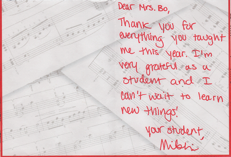 Dear Mrs. Bo,
Thank you for
everything you taught
me this year. I'm
very grateful as a
student and I
can't wait to learn
new things!
your student,